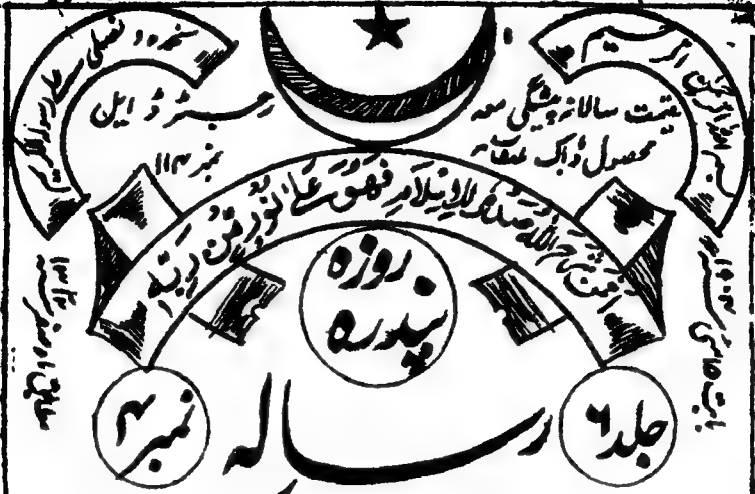 بسم اللہ الرحمن الرحیم
نحمدہ و نصلی علے رسولہ الکریم
قیمت سالانہ پیشگی معہ
محصول ڈاک
رجسٹرڈ ایل
نمبر ۱۱۴
افمن شرح اللہ صدرہ للاسلام فھو علی نور من ربہ
پندرہ روزہ
جلد ۶
رسالہ
نمبر ۴